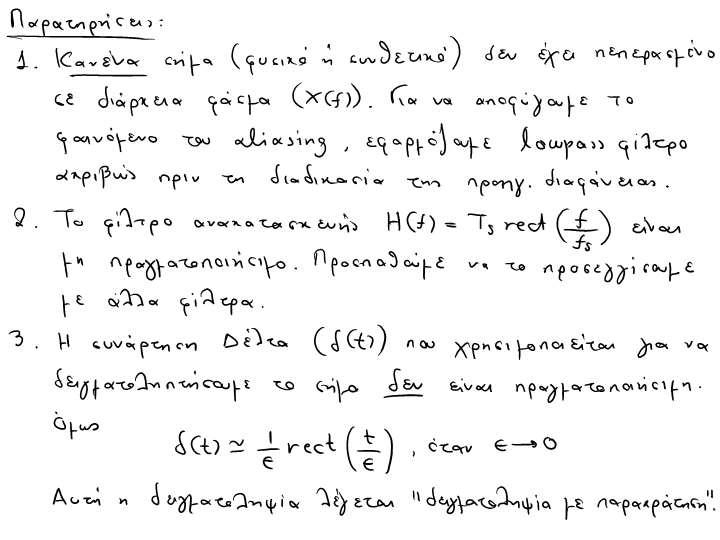 Παρατηρήσεις:
1. Κανένα σήμα (φυσικό ή συνθετικό) δεν έχει πεπερασμένο
σε διάρκεια φάσμα (X(f)). Για να αποφύγουμε το
φαινόμενο του aliasing, εφαρμόζουμε lowpass φίλτρο
ακριβώς πριν τη διαδικασία της προηγ. διαφάνειας.
2. Το φίλτρο ανακατασκευής H(f) = Ts rect(f/fs) είναι
μη πραγματοποιήσιμο. Προσπαθούμε να το προσεγγίσουμε
με άλλα φίλτρα.
3. Η συνάρτηση Δέλτα (δ(t)) που χρησιμοποιείται για να
δειγματοληπτήσουμε το σήμα δεν είναι πραγματοποιήσιμη.
Όμως
δ(t) ≃ 1/ε rect(t/ε), όταν ε→0
Αυτή η δειγματοληψία λέγεται "δειγματοληψία με παρακράτηση".